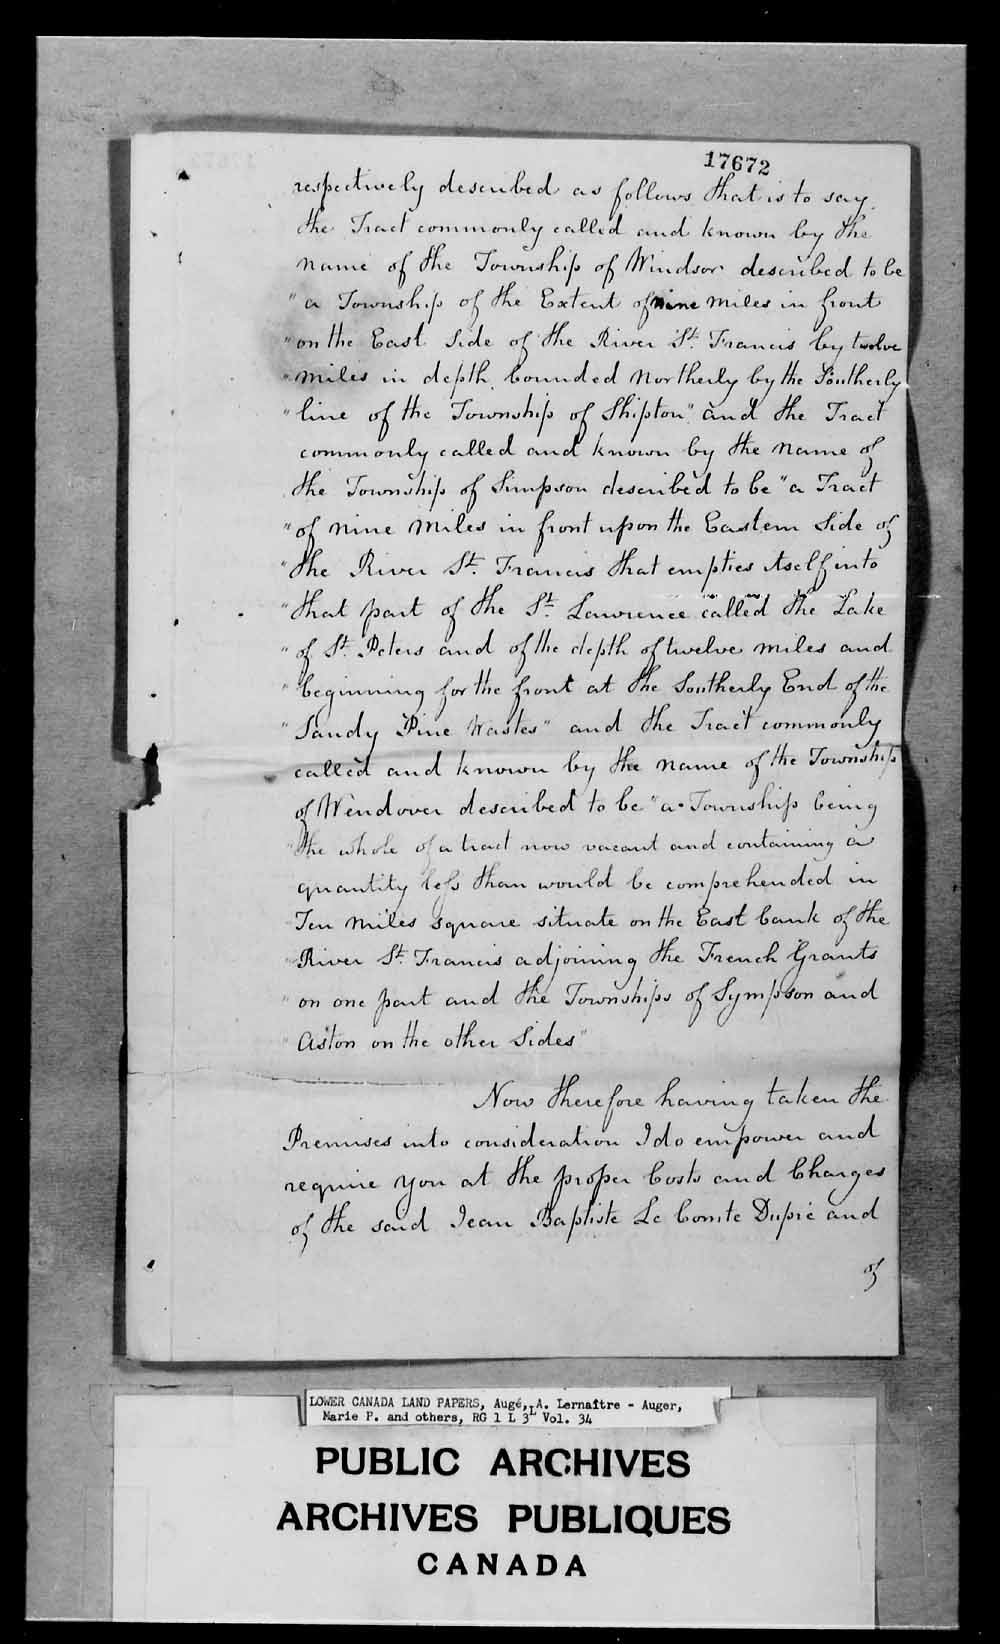 17672
respectively described as follows that is to say
the Tract commonly called and known by the
name of the Township of Windsor described to be
" a Township of the Extent of nine miles in front
" on the East Side of the River St. Francis by twelve
" miles in depth bounded Northerly by the Southerly
" line of the Township of Shipton" and the Tract
commonly called and known by the name of
the Township of Simpson described to be "a Tract
" of nine miles in front upon the Eastern Side of
" the River St. Francis that empties itself into
" that part of the St. Lawrence called the Lake
" of St. Peters and of the depth of twelve miles and
" beginning for the front at the Southerly End of the
" Sandy Pine Wastes" and the Tract commonly
called and known by the name of the Township
of Wendover described to be "a Township being
" the whole of a tract now vacant and containing a
quantity less than would be comprehended in
Ten miles square situate on the East bank of the
" River St. Francis adjoining the French Grants
" on one part and the Townships of Sympson and
" Aston on the other Sides"
Now therefore having taken the
Premises into consideration I do empower and
require you at the proper Costs and Charges
of the said Jean Baptiste Le Comte Dupré and
of
LOWER CANADA LAND PAPERS, Augé, A. Lemaître - Auger,
Marie P. and others, RG 1 L 3L Vol. 34
PUBLIC ARCHIVES
ARCHIVES PUBLIQUES
CANADA